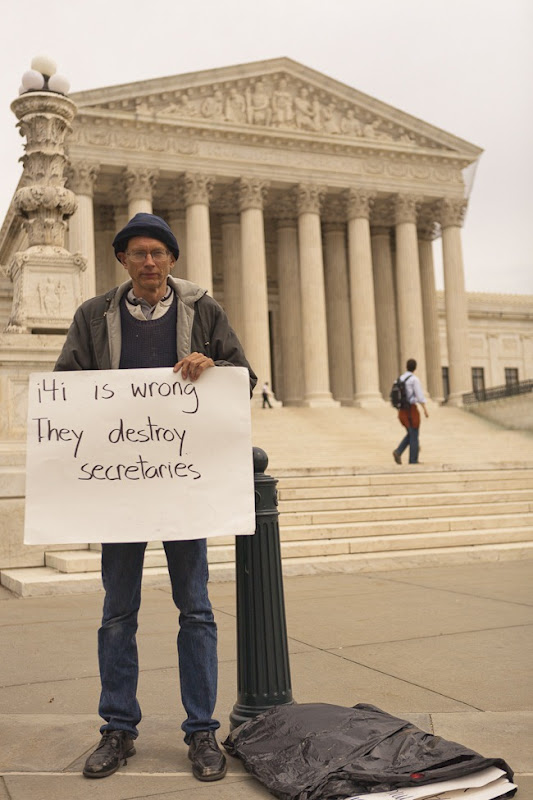 i4i is wrong
They destroy
secretaries